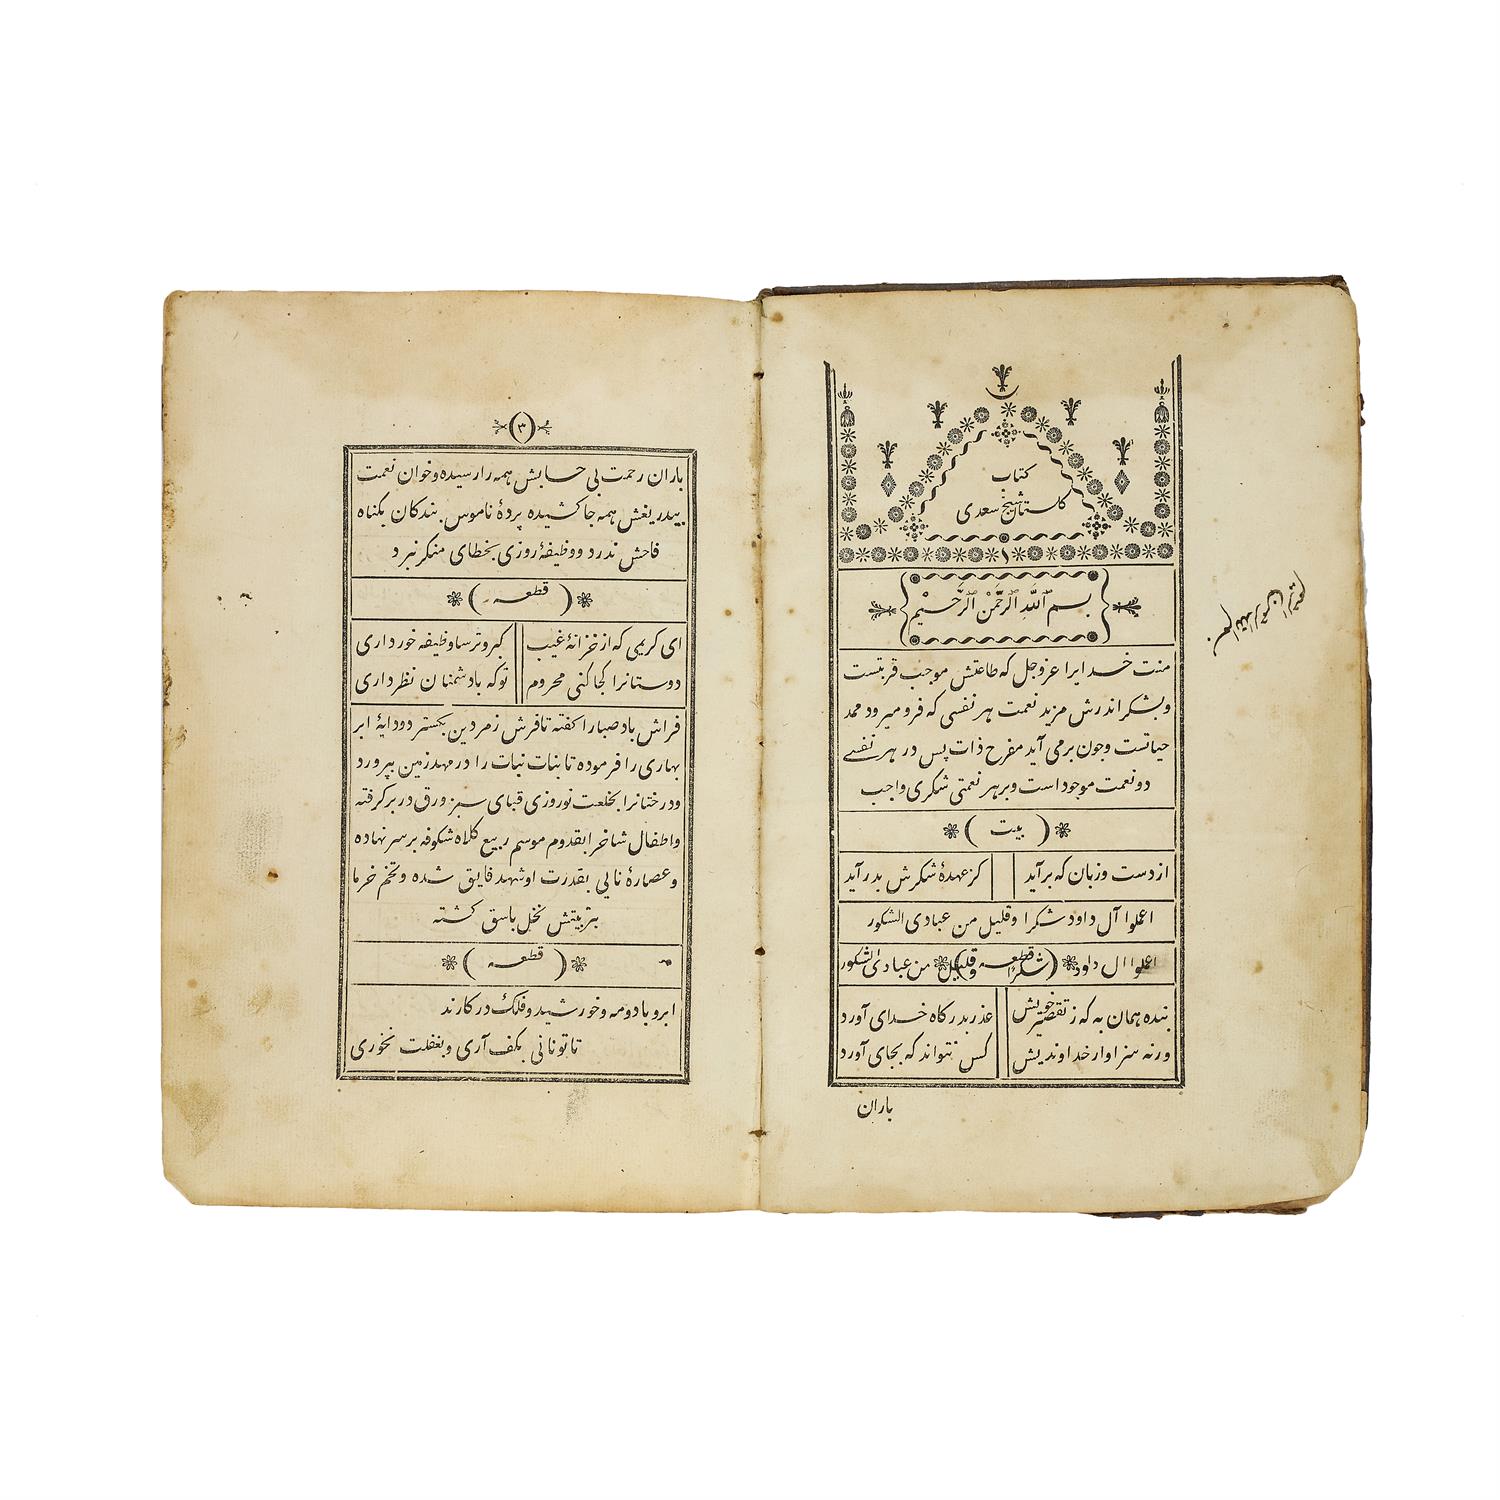 کتاب
کلستان شیخ سعدی
بسم الله الرحمن الرحیم
منت خدایرا عز وجل که طاعتش موجب قربتست
وبشکر اندرش مزید نعمت هر نفسی که فرو میرود ممد
حیاتست وچون برمی آید مفرح ذات پس در هر نفسی
دو نعمت موجود است وبر هر نعمتی شکری واجب
( بیت )
از دست وزبان که برآید کز عهدهٔ شکرش بدر آید
اعملوا آل داود شکرا وقلیل من عبادی الشکور
( قطعه )
اعملوا ال داود شکرا وقلیل من عبادی الشکور
بنده همان به که ز تقصیر خویش عذر بدرکاه خدای آورد
ورنه سزاوار خداوندیش کس نتواند که بجای آورد
باران
بسم الله الرحمن الرحیم
(۳)
باران رحمت بی حسابش همه را رسیده وخوان نعمت
بیدریغش همه جا کشیده پردهٔ ناموس بندکان بکناه
فاحش ندرد ووظیفهٔ روزی بخطای منکر نبرد
( قطعه )
ای کریمی که از خزانهٔ غیب کبر وترسا وظیفه خور داری
دوستانرا کجا کنی محروم توکه با دشمنان نظر داری
فراش باد صبارا کفته تا فرش زمردین بکسترد ودایهٔ ابر
بهاری را فرموده تا بنات نبات را در مهد زمین بپرورد
ودرختانرا بخلعت نوروزی قبای سبز ورق در بر کرفته
واطفال شاخرا بقدوم موسم ربیع کلاه شکوفه بر سر نهاده
وعصارهٔ نالی بقدرت او شهد فایق شده وتخم خرما
بتربیتش نخل باسق کشته
( قطعه )
ابر وباد ومه وخورشید وفلک در کارند
تا تو نانی بکف آری وبغفلت نخوری